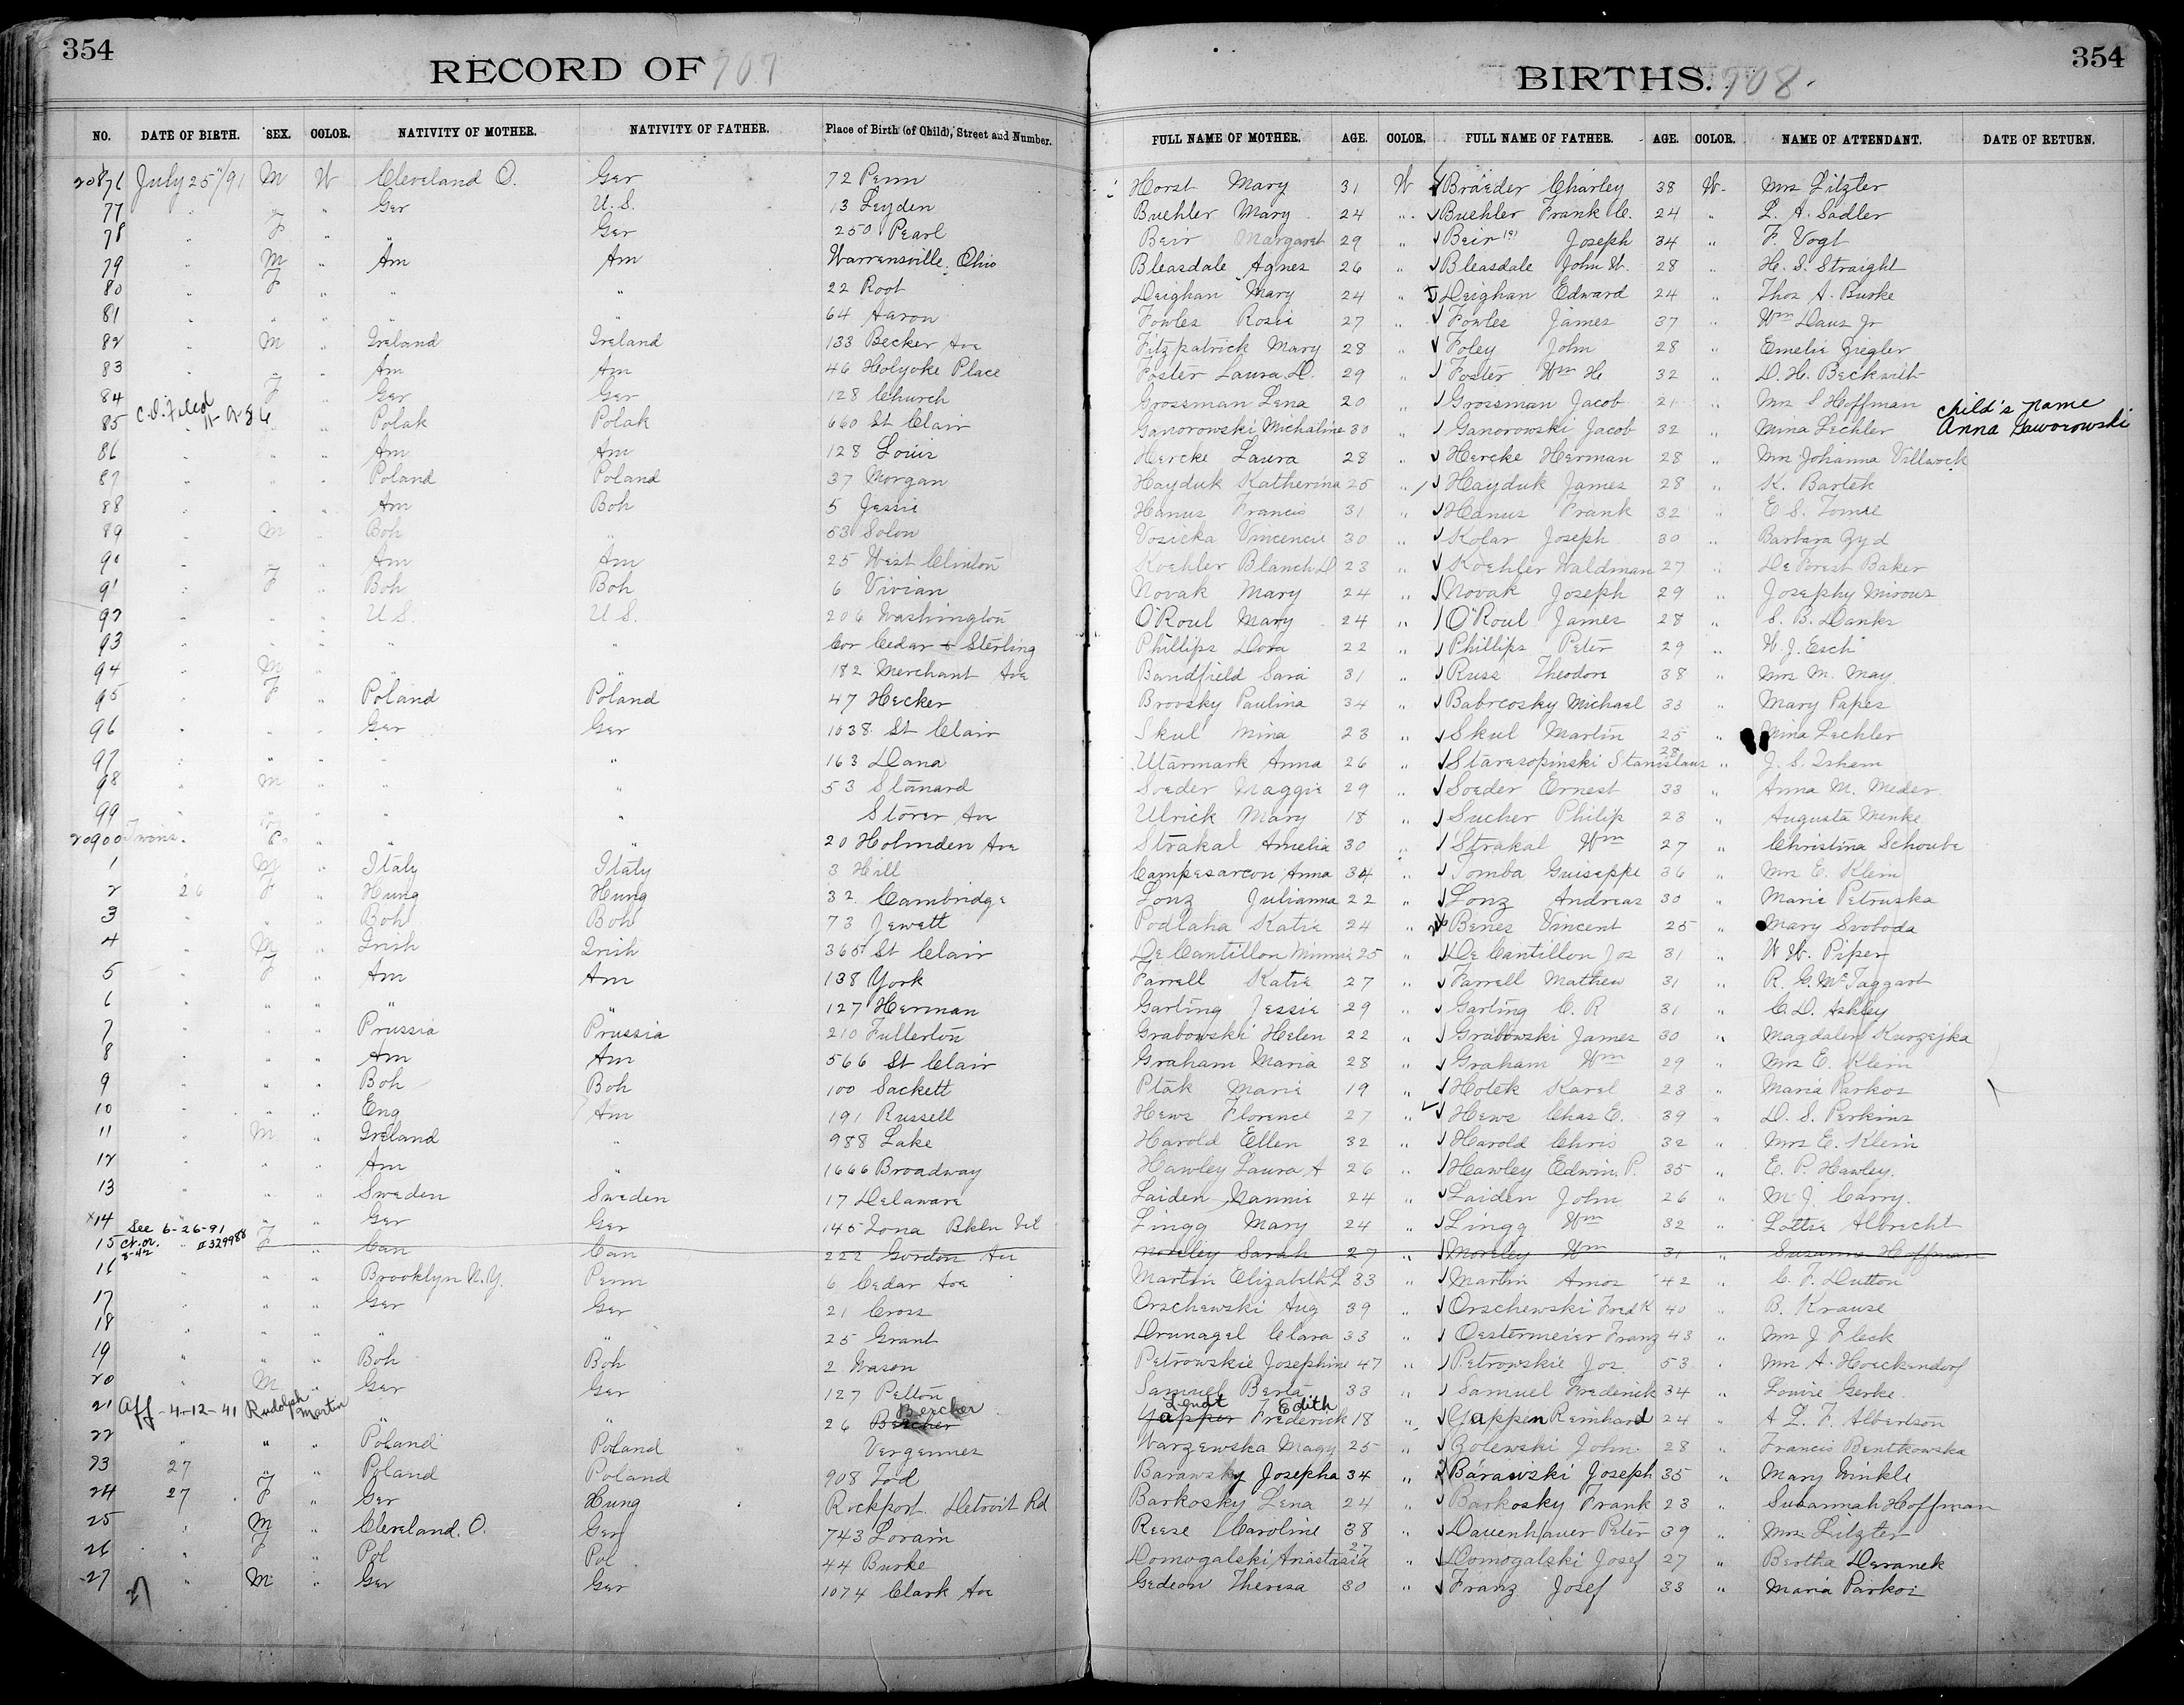 354
RECORD OF 707
BIRTHS. 708.
354
NO. DATE OF BIRTH. SEX. COLOR. NATIVITY OF MOTHER. NATIVITY OF FATHER. Place of Birth (of Child), Street and Number. FULL NAME OF MOTHER. AGE. COLOR. FULL NAME OF FATHER. AGE. COLOR. NAME OF ATTENDANT. DATE OF RETURN.
20876 July 25"/91 M W Cleveland O. Ger 72 Penn Horst Mary 31 W Braeder Charley 38 W. Mrs Litzter
77 " " " Ger U.S. 13 Leyden Buehler Mary 24 " Buehler Frank C. 24 " L. A. Sadler
78 " F " " Ger 250 Pearl Beir Margaret 29 " Beir Joseph 34 " F. Vogt
79 " M " Am Am Warrensville, Ohio Bleasdale Agnes 26 " Bleasdale John W. 28 " H. S. Straight
80 " F " " " 22 Root Deighan Mary 24 " Deighan Edward 24 " Thos A. Burke
81 " " " " " 64 Aaron Fowles Rosie 27 " Fowles James 37 " Wm Daus Jr
82 " M " Ireland Ireland 133 Becker Ave Fitzpatrick Mary 28 " Foley John 28 " Emelie Ziegler
83 " " " Am Am 46 Holyoke Place Foster Laura D. 29 " Foster Wm H 32 " D. H. Beckwith
84 " F " Ger Ger 128 Church Grossman Lena 20 " Grossman Jacob 21 " Mrs S Hoffman
C.O. Filed
85 " " " Polak Polak 660 St Clair Ganorowski Michaline 30 " Ganorowski Jacob 32 " Mina Lechler Child's name Anna Gaworowski
86 " " " Am Am 128 Louis Hercke Laura 28 " Hercke Herman 28 " Mrs Johanna Villwock
87 " " " Poland Poland 37 Morgan Hayduk Katherina 25 " Hayduk James 28 " K. Bartek
88 " " " Am Boh 5 Jessie Hanus Francis 31 " Hanus Frank 32 " E. S. Tomse
89 " M " Boh " 53 Solon Vosicka Vincencie 30 " Kolar Joseph 30 " Barbara Zyd
90 " " " Am Am 25 West Clinton Koehler Blanch D 23 " Koehler Waldiman 27 " De Forest Baker
91 " F " Boh Boh 6 Vivian Novak Mary 24 " Novak Joseph 29 " Josephy Mirous
92 " " " U.S. U.S. 206 Washington O'Roul Mary 24 " O'Roul James 28 " S. B. Danks
93 " " " " " Cor Cedar & Sterling Phillips Dora 22 " Phillips Peter 29 " W. J. Esch
94 " M " " " 182 Merchant Ave Bandfield Sara 31 " Russ Theodore 38 " Mrs M. May
95 " F " Poland Poland 47 Hecker Brovsky Paulina 34 " Babrcosky Michael 33 " Mary Papes
96 " " " Ger Ger 1038 St Clair Skul Mina 23 " Skul Martin 25 " Mina Lechler
97 " " " " " 163 Dana Utarmark Anna 26 " Staresopinski Stanislaus 28 " J. S. Isham
98 " M " " " 53 Stanard Soeder Maggie 29 " Soeder Ernest 33 " Anna M. Meder
99 " " " " " Storer Ave Ulrick Mary 18 " Sucher Philip 23 " Augusta Menke
20900 Twins. " " " 20 Holmden Ave Strakal Amelia 30 " Strakal Wm 27 " Christina Schoube
1 " M " Italy Italy 3 Hill Campesarcon Anna 34 " Tomba Guiseppe 36 " Mrs E. Klein
2 26 F " Hung Hung 32 Cambridge Lonz Julianna 22 " Lonz Andreas 30 " Marie Petruska
3 " " " Boh Boh 73 Jewett Podlaha Katie 24 " Benes Vincent 25 " Mary Svoboda
4 " M " Irish Irish 365 St Clair De Cantillon Minnie 25 " De Cantillon Jos 31 " W W. Piper
5 " F " Am Am 138 York Farrell Katie 27 " Farrell Mathew 31 " R. G. McTaggart
6 " " " " " 127 Herman Garling Jessie 29 " Garling C. R 31 " C. D. Ashley
7 " " " Prussia Prussia 210 Fullerton Grabowski Helen 22 " Grabowski James 30 " Magdalen Kurzejka
8 " " " Am Am 566 St Clair Graham Maria 28 " Graham Wm 29 " Mrs E. Klein
9 " " " Boh Boh 100 Sackett Ptak Marie 19 " Hotek Karel 23 " Maria Parkos
10 " " " Eng Am 191 Russell Hews Florence 27 " Hews Chas E. 39 " D. S. Perkins
11 " M " Ireland " 988 Lake Harold Ellen 32 " Harold Chris 32 " Mrs E. Klein
12 " " " Am " 1666 Broadway Hawley Laura A 26 " Hawley Edwin P. 35 " E. P. Hawley
13 " " " Sweden Sweden 17 Delaware Laiden Nannie 24 " Laiden John 26 " M. J. Carry
x14 " " " Ger Ger 145 Iona Bkln Vil Lingg Mary 24 " Lingg Wm 32 " Lottie Albrecht
See 6-26-91 Ct. or. 3-42 #329988
15 " F " Can Can 222 Gordon Av Morley Sarah 27 " Morley Wm 31 " Susanna Hoffman
16 " " " Brooklyn N.Y. Penn 6 Cedar Ave Martin Elizabeth L 33 " Martin Amos 42 " C. F. Dutton
17 " " " Ger Ger 21 Cross Orschewski Aug 39 " Orschewski Fredk 40 " B. Krause
18 " " " " " 25 Grant Drunagel Clara 33 " Oestermeier Franz 43 " Mrs J Fleck
19 " " " Boh Boh 2 Wason Petrowskie Josephine 47 " Petrowskie Jos 53 " Mrs A. Hoeckendorf
20 " M " Ger Ger 127 Pelton Samuel Berta 33 " Samuel Frederick 34 " Louise Gerke
21 Aff - 4-12-41 Rudolph Martin " " 26 Beecher Edith Frederick 18 " Yappen Reinhard 24 " A L. F. Albertson
22 " " " Poland Poland Vergennes Warzewska Magy 25 " Zolewski John 28 " Francis Bentkowska
23 27 " " Poland Poland 908 Tod Barawsky Josepha 34 " Barawski Joseph 35 " Mary Winkle
24 27 F " Ger Hung Rockport. Detroit Rd Barkosky Lena 24 " Barkosky Frank 23 " Susannah Hoffman
25 " M " Cleveland. O. Ger 743 Lorain Reese Caroline 38 " Dauenhauer Peter 39 " Mrs Litzter
26 " F " Pol Pol 44 Burke Domogalski Anastasia 27 " Domogalski Josef 27 " Bertha Deranek
27 " M " Ger Ger 1074 Clark Ave Gedeon Theresa 30 " Franz Josef 33 " Maria Parkos